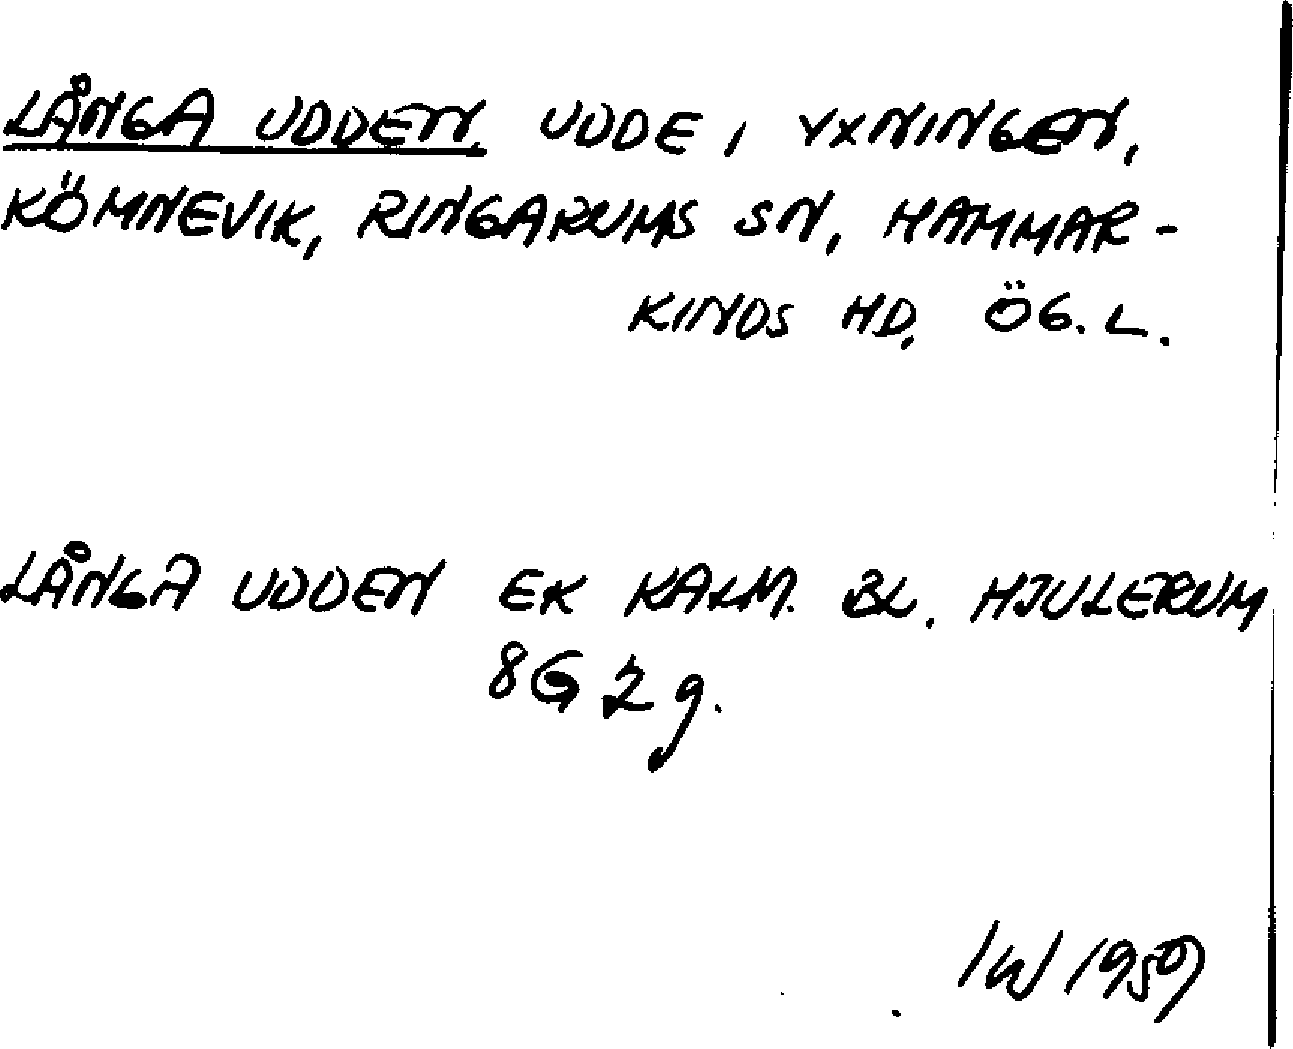 LÅNGA UDDEN, UDDE I YXNINGEN,
KÖMNEVIK, RINGARUMS SN, HAMMAR-
KINDS HD, ÖG. L.
LÅNGA UDDEN EK KALM. BL. HJULERUM
8G 2 g.
IW 1959